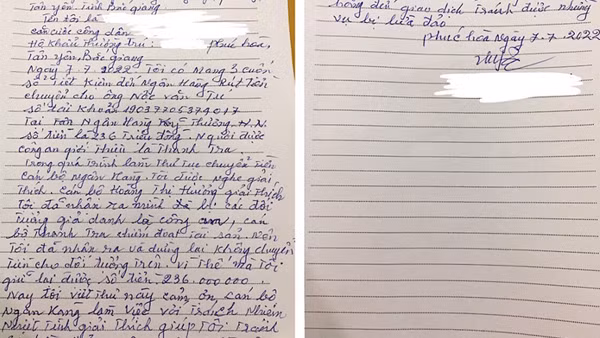 Tân yên. Tỉnh Bắc giang
Tên tôi là
Căn cước công dân
Hộ khẩu thường trú: phúc hòa,
Tân yên, Bắc giang
Ngày 7.7.2022. Tôi có mang 3 cuốn
sổ tiết kiệm đến Ngân hàng rút tiền
chuyển cho ông Nặc văn Tu
số tài khoản 19037705374017
Tại Ngân Hàng Thương H.N.
số tiền là 236 triệu đồng. Người được
công an giới thiệu là Thanh Tra.
Trong quá trình làm thủ tục chuyển tiền
cán bộ Ngân Hàng. Tôi được nghe giải
thích. Cán bộ Hoàng Thị Hương giải thích
Tôi đã nhận ra mình đã bị các đối
tượng giả danh là công an, cán
bộ Thanh Tra chiếm đoạt tài sản. Nên
Tôi đã nhận ra và dừng lại không chuyển
tiền cho đối tượng trên. Vì thế mà tôi
giữ lại được số tiền. 236.000.000.
Nay tôi viết thư này cảm ơn, cán bộ
Ngân Hàng làm việc với trách nhiệm
nhiệt tình giải thích giúp tôi tránh
giao dịch tránh được những
vụ bị lừa đảo
phúc hòa ngày 7.7.2022